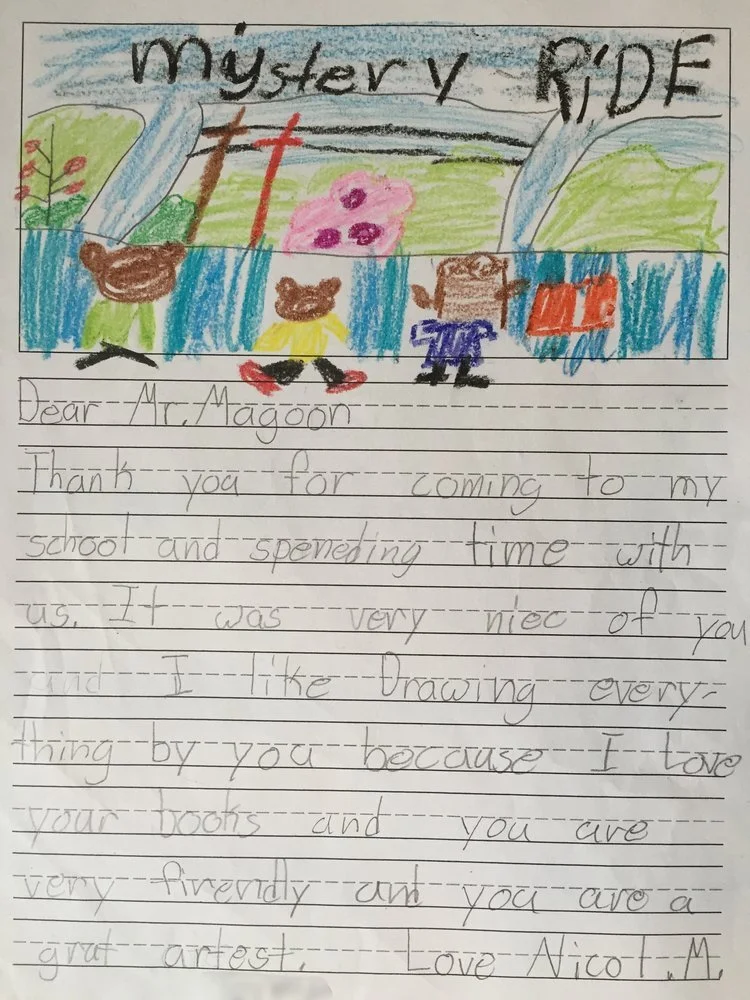 mystery RiDE
Dear Mr. Magoon
Thank you for coming to my
school and speneding time with
us. It was very niec of you
and I like Drawing every-
thing by you because I Love
your books and you are
very firendly and you are a
grat artest. Love Nicol.M.